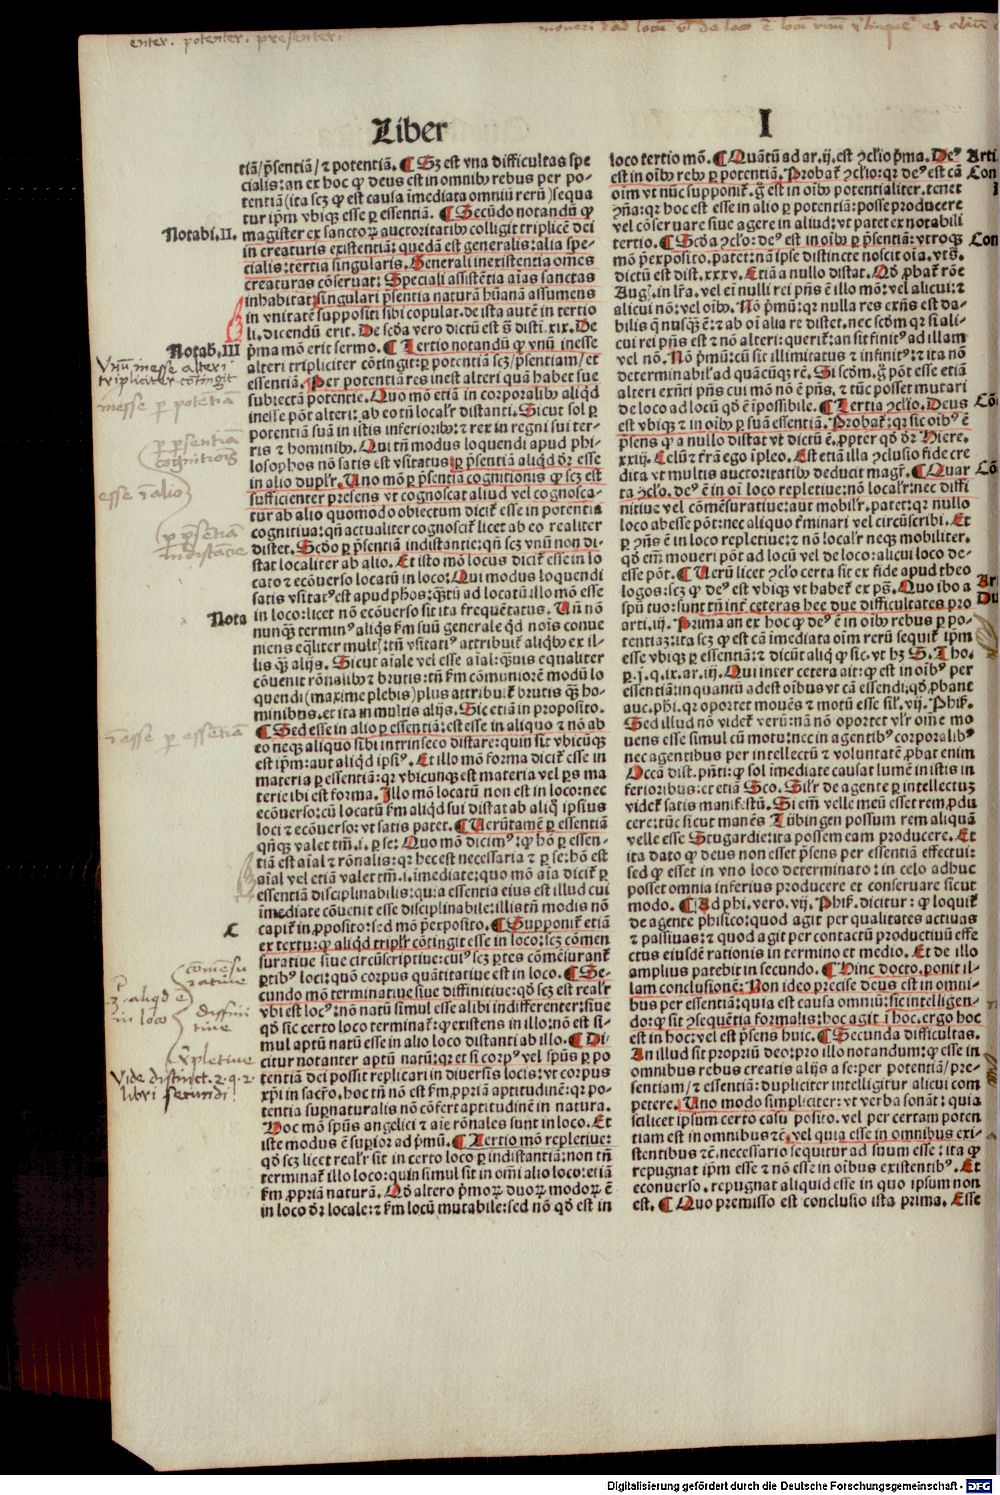 enter. potenter. presenter.
Liber I
tiā/p̄sentiā/ ⁊ potentiā. ¶ Sꝫ est vna difficultas spe
cialis: an ex hoc ꝙ deus est in omnibꝰ rebus per po-
tentiā (ita scꝫ ꝙ est causa īmediata omniū rerū) sequa
tur ip̄m vbiqꝫ esse per essentiā. ¶ Secūdo notandū ꝙ
Notabi. II.
magister ex sanctoꝝ auctoritatibꝰ colligit triplicē dei
in creaturis existentiā: quedā est generalis: alia spe-
cialis: tertia singularis. Generali inexistentia om̄es
creaturas cōseruat: Speciali assistētia aīas sanctas
inhabitat: singulari p̄sentia naturā hūanā assumens
in vnitatē suppositi sibi copulat. de ista autē in tertio
li. dicendū erit. De scd̄a vero dictū est s̄ disti. xix. De
Notab. III
p̄ma mō erit sermo. ¶ Tertio notandū ꝙ vnū inesse
Vnū inesse alteri
tripliciter cōtingit
alteri tripliciter cōtingit: ꝑ potentiā scꝫ/p̄sentiam/et
essentiā. Per potentiā res inest alteri quā habet sue
inesse ꝑ potētiā
subiectā potentie. Quo mō etiā in corporalibꝰ aliqd̄
inesse pōt alteri: ab eo tn̄ localr̄ distanti. Sicut sol ꝑ
potentiā suā in istis inferioribꝰ: ⁊ rex in regni sui ter-
ꝑ p̄sentiā
cognitiōis
ris ⁊ hominibꝰ. Qui tn̄ modus loquendi apud phi-
losophos nō satis est vsitatus: ꝑ p̄sentiā aliqd̄ dr̄ esse
in alio duplr̄. Uno mō ꝑ p̄sentiā cognitionis ꝙ scꝫ est
esse ī alio
sufficienter presens vt cognoscat aliud vel cognosca-
tur ab alio quomodo obiectum dicit̄ esse in potentia
cognitiua: qn̄ actualiter cognoscit̄ licet ab eo realiter
ꝑ p̄sētiā
indistātie
distet. Scd̄o ꝑ p̄sentiā indistantie: qn̄ scꝫ vnū non di-
stat localiter ab alio. Et isto mō locus dicit̄ esse in lo
cato ⁊ ecōuerso locatū in loco: Qui modus loquendi
satis vsitatꝰ est apud ph̄os: ꝙ̄tū ad locatū: illo mō esse
in loco: licet nō ecōuerso sit ita frequētatus. Un̄ nō
Nota
nunqꝫ terminꝰ aliqͥs km̄ suū generale qd̄ noīs conue
niens eq̄liter multꝭ: tn̄ vsitatiꝰ attribuit̄ aliqͥbꝰ ex il-
lis qͣꝫ alijs. Sicut aīale vel esse aīal: qͣꝫuis equaliter
cōuenit rōnalibꝰ ⁊ brutis: tn̄ km̄ cōmuniorē modū lo
quendi (maxime plebis) plus attribuit̄ brutis qͣꝫ ho-
minibus. et ita in multis alijs. Sic etiā in proposito.
īesse ꝑ essētiā
¶ Sed esse in alio ꝑ essentiā: est esse in aliquo ⁊ nō ab
eo neqꝫ aliquo sibi intrinseco distare: quin sit vbicūqꝫ
est ip̄m: aut aliqd̄ ipsiꝰ. Et illo mō forma dicit̄ esse in
materia ꝑ essentiā: qr vbicunqꝫ est materia vel ꝑs ma
terie ibi est forma. Illo mō locatū non est in loco: nec
ecōuerso: cū locatū km̄ aliqd̄ sui distat ab aliq̄ ipsius
loci ⁊ ecōuerso: vt satis patet. ¶ Uerūtamē ꝑ essentiā
qn̄qꝫ valet tm̄. i. ꝑ se: Quo mō dicimꝰ: ꝙ hō ꝑ essen-
tiā est aīal ⁊ rōnalis: qr hec est necessaria ⁊ ꝑ se: hō est
aīal vel etiā valet tm̄. i. īmediate: quo mō aīa dicit̄ ꝑ
essentiā disciplinabilis: quia essentia eius est illud cui
īmediate cōuenit esse disciplinabile: illis tn̄ modis nō
C
capit̄ in ꝓposito: sed mō p̄exposito. ¶ Supponit̄ etiā
ex textu: ꝙ aliqd̄ triplr̄ cōtingit esse in loco: scꝫ cōmen
comēsu
ratiue
suratiue siue circūscriptiue: cuiꝰ scꝫ ꝑtes cōmēiurant̄
ꝑtibꝰ loci: quō corpus quātitatiue est in loco. ¶ Se-
aliqd ē
in loco
diffini
tiue
cundo mō terminatiue siue diffinitiue: qd̄ scꝫ est realr̄
vbi est locꝰ: nō natū simul esse alibi indifferenter: siue
qd̄ sic certo loco terminat̄: ꝙ existens in illo: nō est si-
mul aptū natū esse in alio loco distanti ab illo. ¶ Di-
repletiue
citur notanter aptū natū: qr et si corpꝰ vel spūs ꝑ po
Vide distinct. 2. q. 2.
libri secundi!
tentiā dei possit replicari in diuersis locis: vt corpus
xp̄i in sacr̄o. hoc tn̄ nō est km̄ ꝓpriā aptitudinē: qr po-
tentia suꝑnaturalis nō cōfert aptitudinē in natura.
Hoc mō spūs angelici ⁊ aīe rōnales sunt in loco. Et
iste modus ē supior ad p̄mū. ¶ Tertio mō repletiue:
qd̄ scꝫ licet realr̄ sit in certo loco ꝑ indistantiā: non tn̄
terminat̄ illo loco: quin simul sit in om̄i alio loco: etiā
km̄ ꝓpriā naturā. Qd̄ altero p̄moꝝ duoꝝ modoꝝ ē
in loco dr̄ locale: ⁊ km̄ locū mutabile: sed nō qd̄ est in
loco tertio mō. ¶ Quātū ad ar. ij. est ꝯclio p̄ma. Deꝰ
Arti
est in oībꝰ rebꝰ ꝑ potentiā. Probat̄ ꝯclio: qr deꝰ est cā
Con
oīm vt nūc supponit̄. g̊ est in oībꝰ potentialiter. tenet
ꝯn̄a: qr hoc est esse in alio ꝑ potentiā: posse producere
vel cōseruare siue agere in aliud: vt patet ex notabili
tertio. ¶ Scd̄a ꝯclo: deꝰ est in oībꝰ ꝑ p̄sentiā: vtroqꝫ
Con
mō p̄exposito. patet: nā ipse distincte noscit oīa. vt s̄
dictū est dist. xxxv. Etiā a nullo distat. Qd̄ ꝓbat̄ rōne
Augꝭ. in lr̄a. vel eī nulli rei p̄n̄s ē illo mō: vel alicui: ⁊
alicui nō: vel oībꝰ. Nō p̄mū: qr nulla res exn̄s est da-
bilis qͥ nusqͣꝫ ē: ⁊ ab oī alia re distet. nec scd̄m qr si ali-
cui rei p̄n̄s est ⁊ nō alteri: querit̄: an sit finitꝰ ad illam
vel nō. Nō p̄mū: cū sit illimitatus ⁊ infinitꝰ: ⁊ ita nō
determinabilꝭ ad quācūqꝫ rē. Si scd̄m. g̊ pōt esse etiā
alteri exn̄ti p̄n̄s cui mō nō ē p̄n̄s. ⁊ tūc posset mutari
de loco ad locū qd̄ ē īpossibile. ¶ Tertia ꝯclio. Deus
Cō
est vbiqꝫ ⁊ in oībꝰ ꝑ suā essentiā. Probat̄: qr sic oībꝰ ē
p̄sens ꝙ a nullo distat vt dictū ē. ꝓpter qd̄ dr̄ Hiere.
xxiij. Celū ⁊ trā ego īpleo. Est etiā illa ꝯclusio fide cre
dita vt multis auctoritatibꝰ deducit magr̄. ¶ Quar
Cō
ta ꝯclo. deꝰ ē in oī loco repletiue: nō localr̄: nec diffi
nitiue vel cōmēsuratiue: aut mobilr̄. patet: qr nullo
loco abesse pōt: nec aliquo t̄minari vel circūscribi. Et
ꝑ ꝯn̄s ē in loco repletiue: ⁊ nō localr̄ neqꝫ mobiliter.
qd̄ em̄ moueri pōt ad locū vel de loco: alicui loco de-
esse pōt. ¶ Uerū licet ꝯclo certa sit ex fide apud theo
Ar
logos: scꝫ ꝙ deꝰ est vbiqꝫ vt habet̄ ex ps̄. Quo ibo a
Du
spū tuo: sunt tn̄ int̄ ceteras hee due difficultates pro
arti. iij. Prima an ex hoc ꝙ deꝰ ē in oībꝰ rebus ꝑ po-
tentiaꝫ: ita scꝫ ꝙ est cā īmediata oīm rerū sequit̄ ip̄m
esse vbiqꝫ ꝑ essentiā: ⁊ dicūt aliqͥ ꝙ sic. vt hꝫ S. Tho.
ꝑ. j. q. ix. ar. iij. Qui inter cetera ait: ꝙ est in oībꝰ per
essentiā: in quantū adest oībus vt cā essendi. qd̄ ꝓbant
auc. phi. qr oportet mouēs ⁊ motū esse sil̄. vij. Phiꝫ.
Sed illud nō videt̄ verū: nā nō oportet vlr̄ om̄e mo
uens esse simul cū motu: nec in agentibꝰ corporalibꝰ
nec agentibus per intellectū ⁊ voluntatē. ꝓbat enim
Occā dist. p̄n̄ti: ꝙ sol īmediate causat lumē in istis in
ferioribus: et etiā Sco. Silr̄ de agente ꝑ intellectuꝫ
videt̄ satis manifestū. Si em̄ velle meū esset rem ꝓdu
cere: tūc sicut manēs Tübingen possum rem aliquā
velle esse Stugardie: ita possem eam producere. Et
ita dato ꝙ deus non esset p̄sens per essentiā effectui:
sed ꝙ esset in vno loco determinato: in celo adhuc
posset omnia inferius producere et conseruare sicut
modo. ¶ Ad phi. vero. vij. Phiꝫ. dicitur: ꝙ loquit̄
de agente phisico: quod agit per qualitates actiuas
⁊ passiuas: ⁊ quod agit per contactū productiuū effe
ctus eiusdē rationis in termino et medio. Et de illo
amplius patebit in secundo. ¶ Hinc docto. ponit il-
lam conclusionē: Non ideo precise deus est in omni-
bus per essentiā: quia est causa omniū: sic intelligen-
do: ꝙ sit ꝯsequētia formalis: hoc agit ī hoc. ergo hoc
est in hoc: vel est p̄sens huic. ¶ Secunda difficultas.
An illud sit propriū deo: pro illo notandum: ꝙ esse in
omnibus rebus creatis alijs a se: per potentiā/pre-
sentiam/ ⁊ essentiā: dupliciter intelligitur alicui com
petere. Uno modo simpliciter: vt verba sonāt: quia
scilicet ipsum certo casu posito. vel per certam poten
tiam est in omnibus ⁊c̄. vel quia esse in omnibus exi-
stentibus ⁊c̄. necessario sequitur ad suum esse: ita ꝙ
repugnat ip̄m esse ⁊ nō esse in oībus existentibꝰ. Et
econuerso. repugnat aliquid esse in quo ipsum non
est. ¶ Quo premisso est conclusio ista prima. Esse
Digitalisierung gefördert durch die Deutsche Forschungsgemeinschaft - DFG